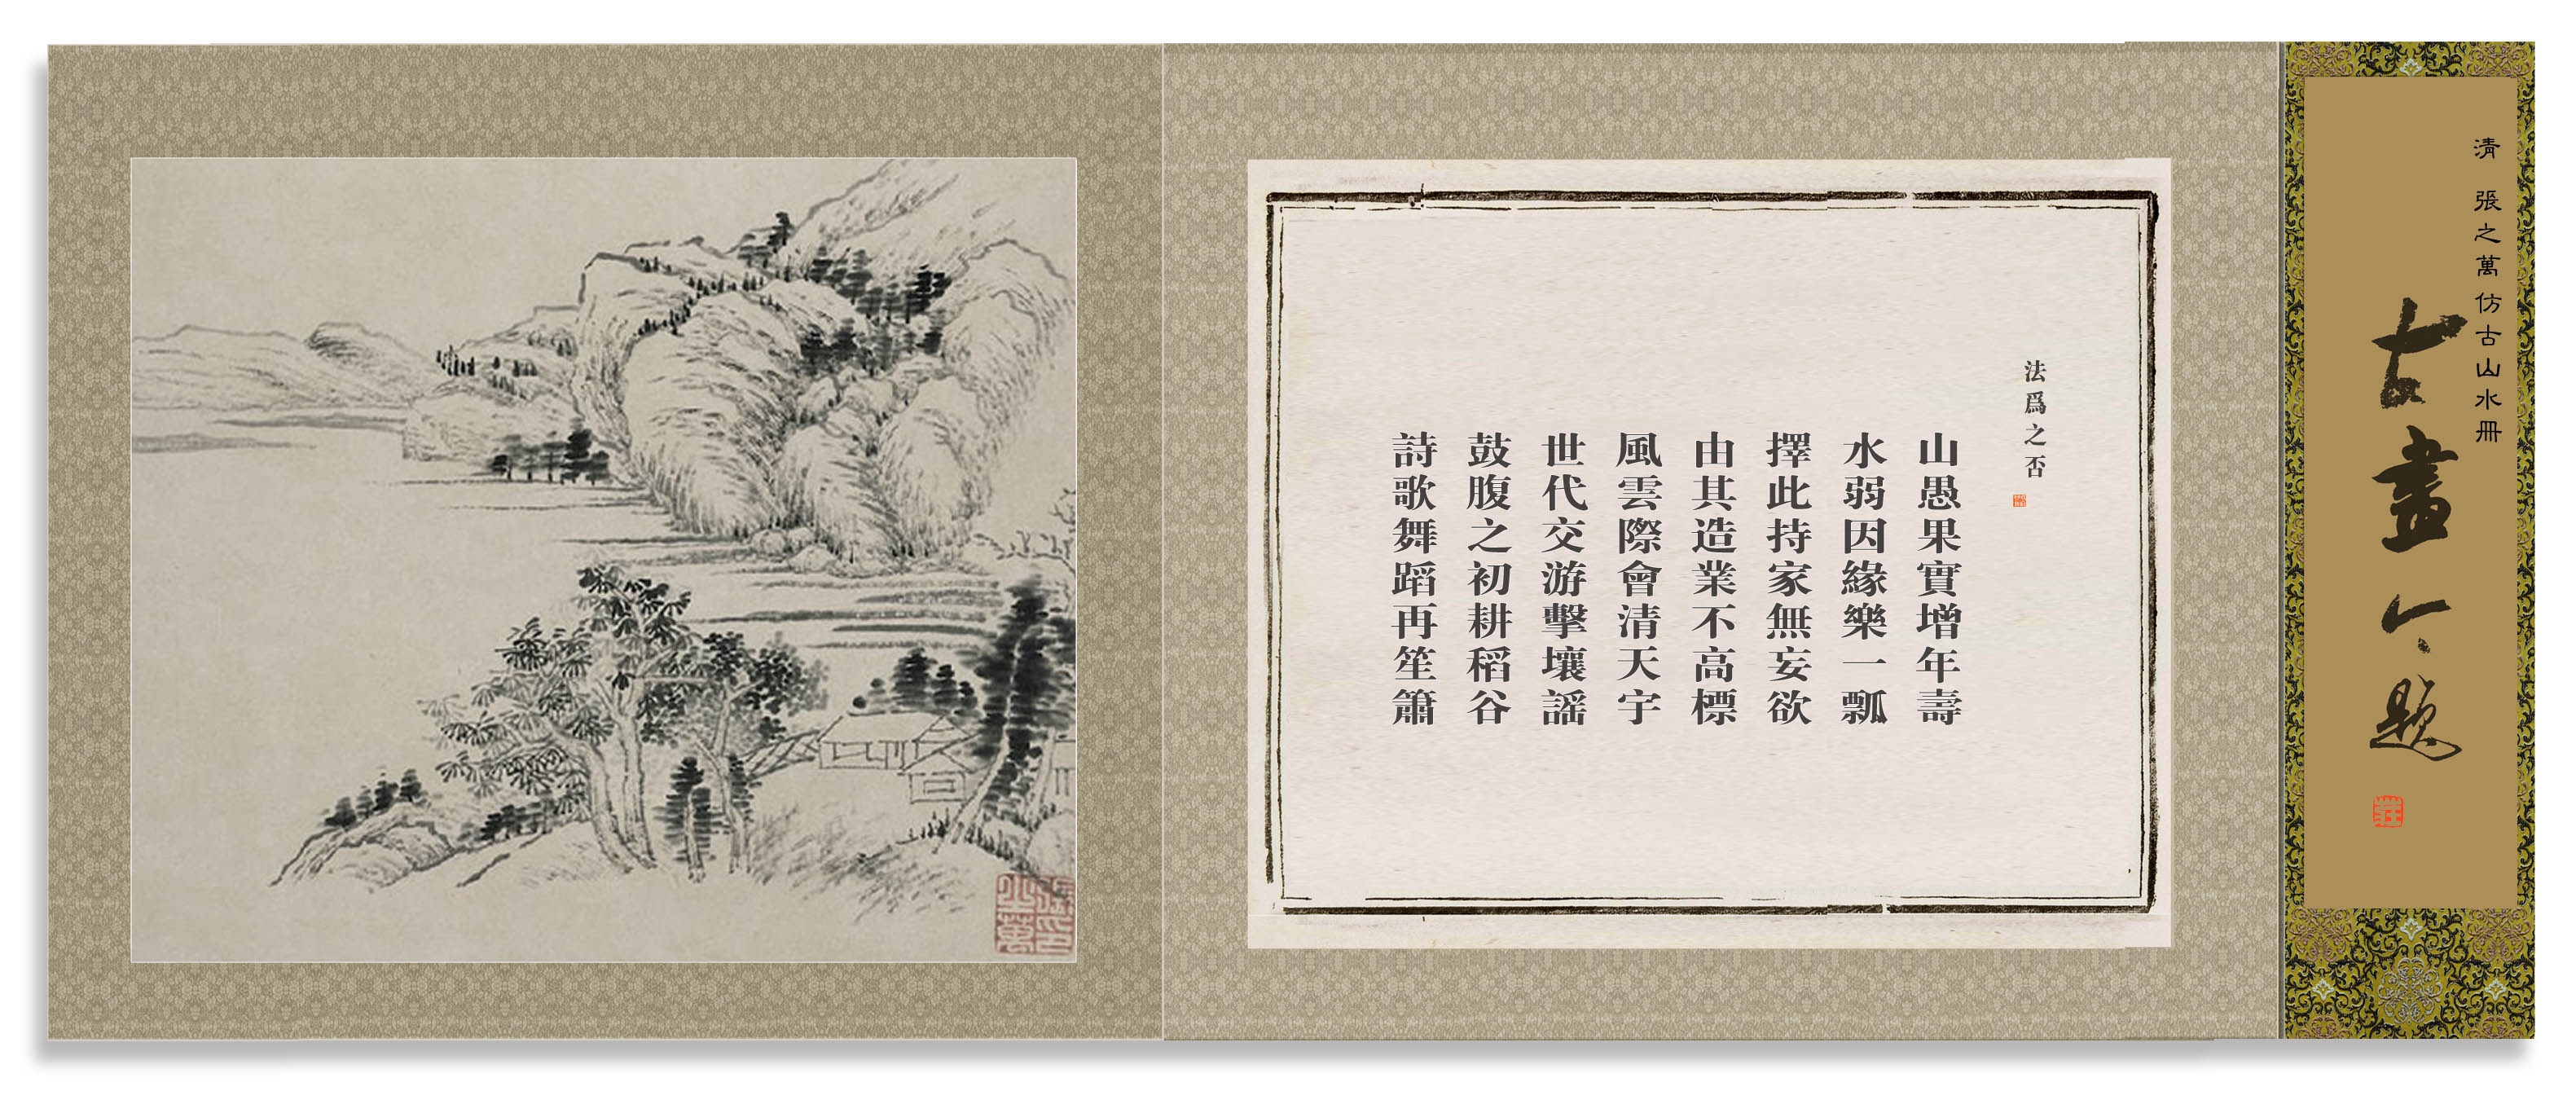 清 張之萬仿古山水冊
古畫今題
法爲之否
山愚果實增年壽
水弱因緣樂一瓢
擇此持家無妄欲
由其造業不高標
風雲際會清天宇
世代交游擊壤謠
鼓腹之初耕稻谷
詩歌舞蹈再笙簫
張之萬印